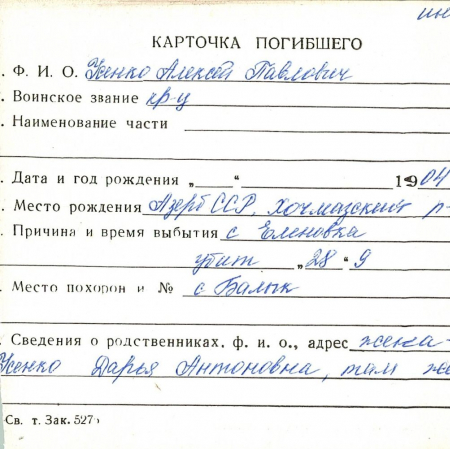 ин
КАРТОЧКА ПОГИБШЕГО
. Ф. И. О. Усенко Алексей Павлович
. Воинское звание кр-ц
. Наименование части
. Дата и год рождения „ “ 1904
. Место рождения Азерб ССР, Хочмазский р-
. Причина и время выбытия с Еленовка
убит „28“ 9
. Место похорон и № с Балык
. Сведения о родственниках, ф. и. о., адрес жена -
Усенко Дарья Антоновна, там же
Св. т. Зак. 527